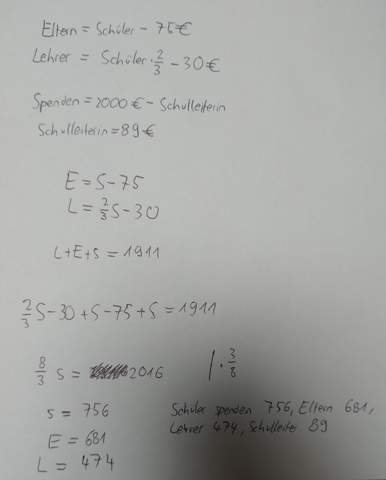 Eltern = Schüler - 75€
Lehrer = Schüler · 2/3 - 30€
Spenden = 2000€ - Schulleiterin
Schulleiterin = 89€
E = S - 75
L = 2/3 S - 30
L + E + S = 1911
2/3 S - 30 + S - 75 + S = 1911
8/3 S = 2016 | · 3/8
S = 756
E = 681
L = 474
Schüler spenden 756, Eltern 681,
Lehrer 474, Schulleiter 89